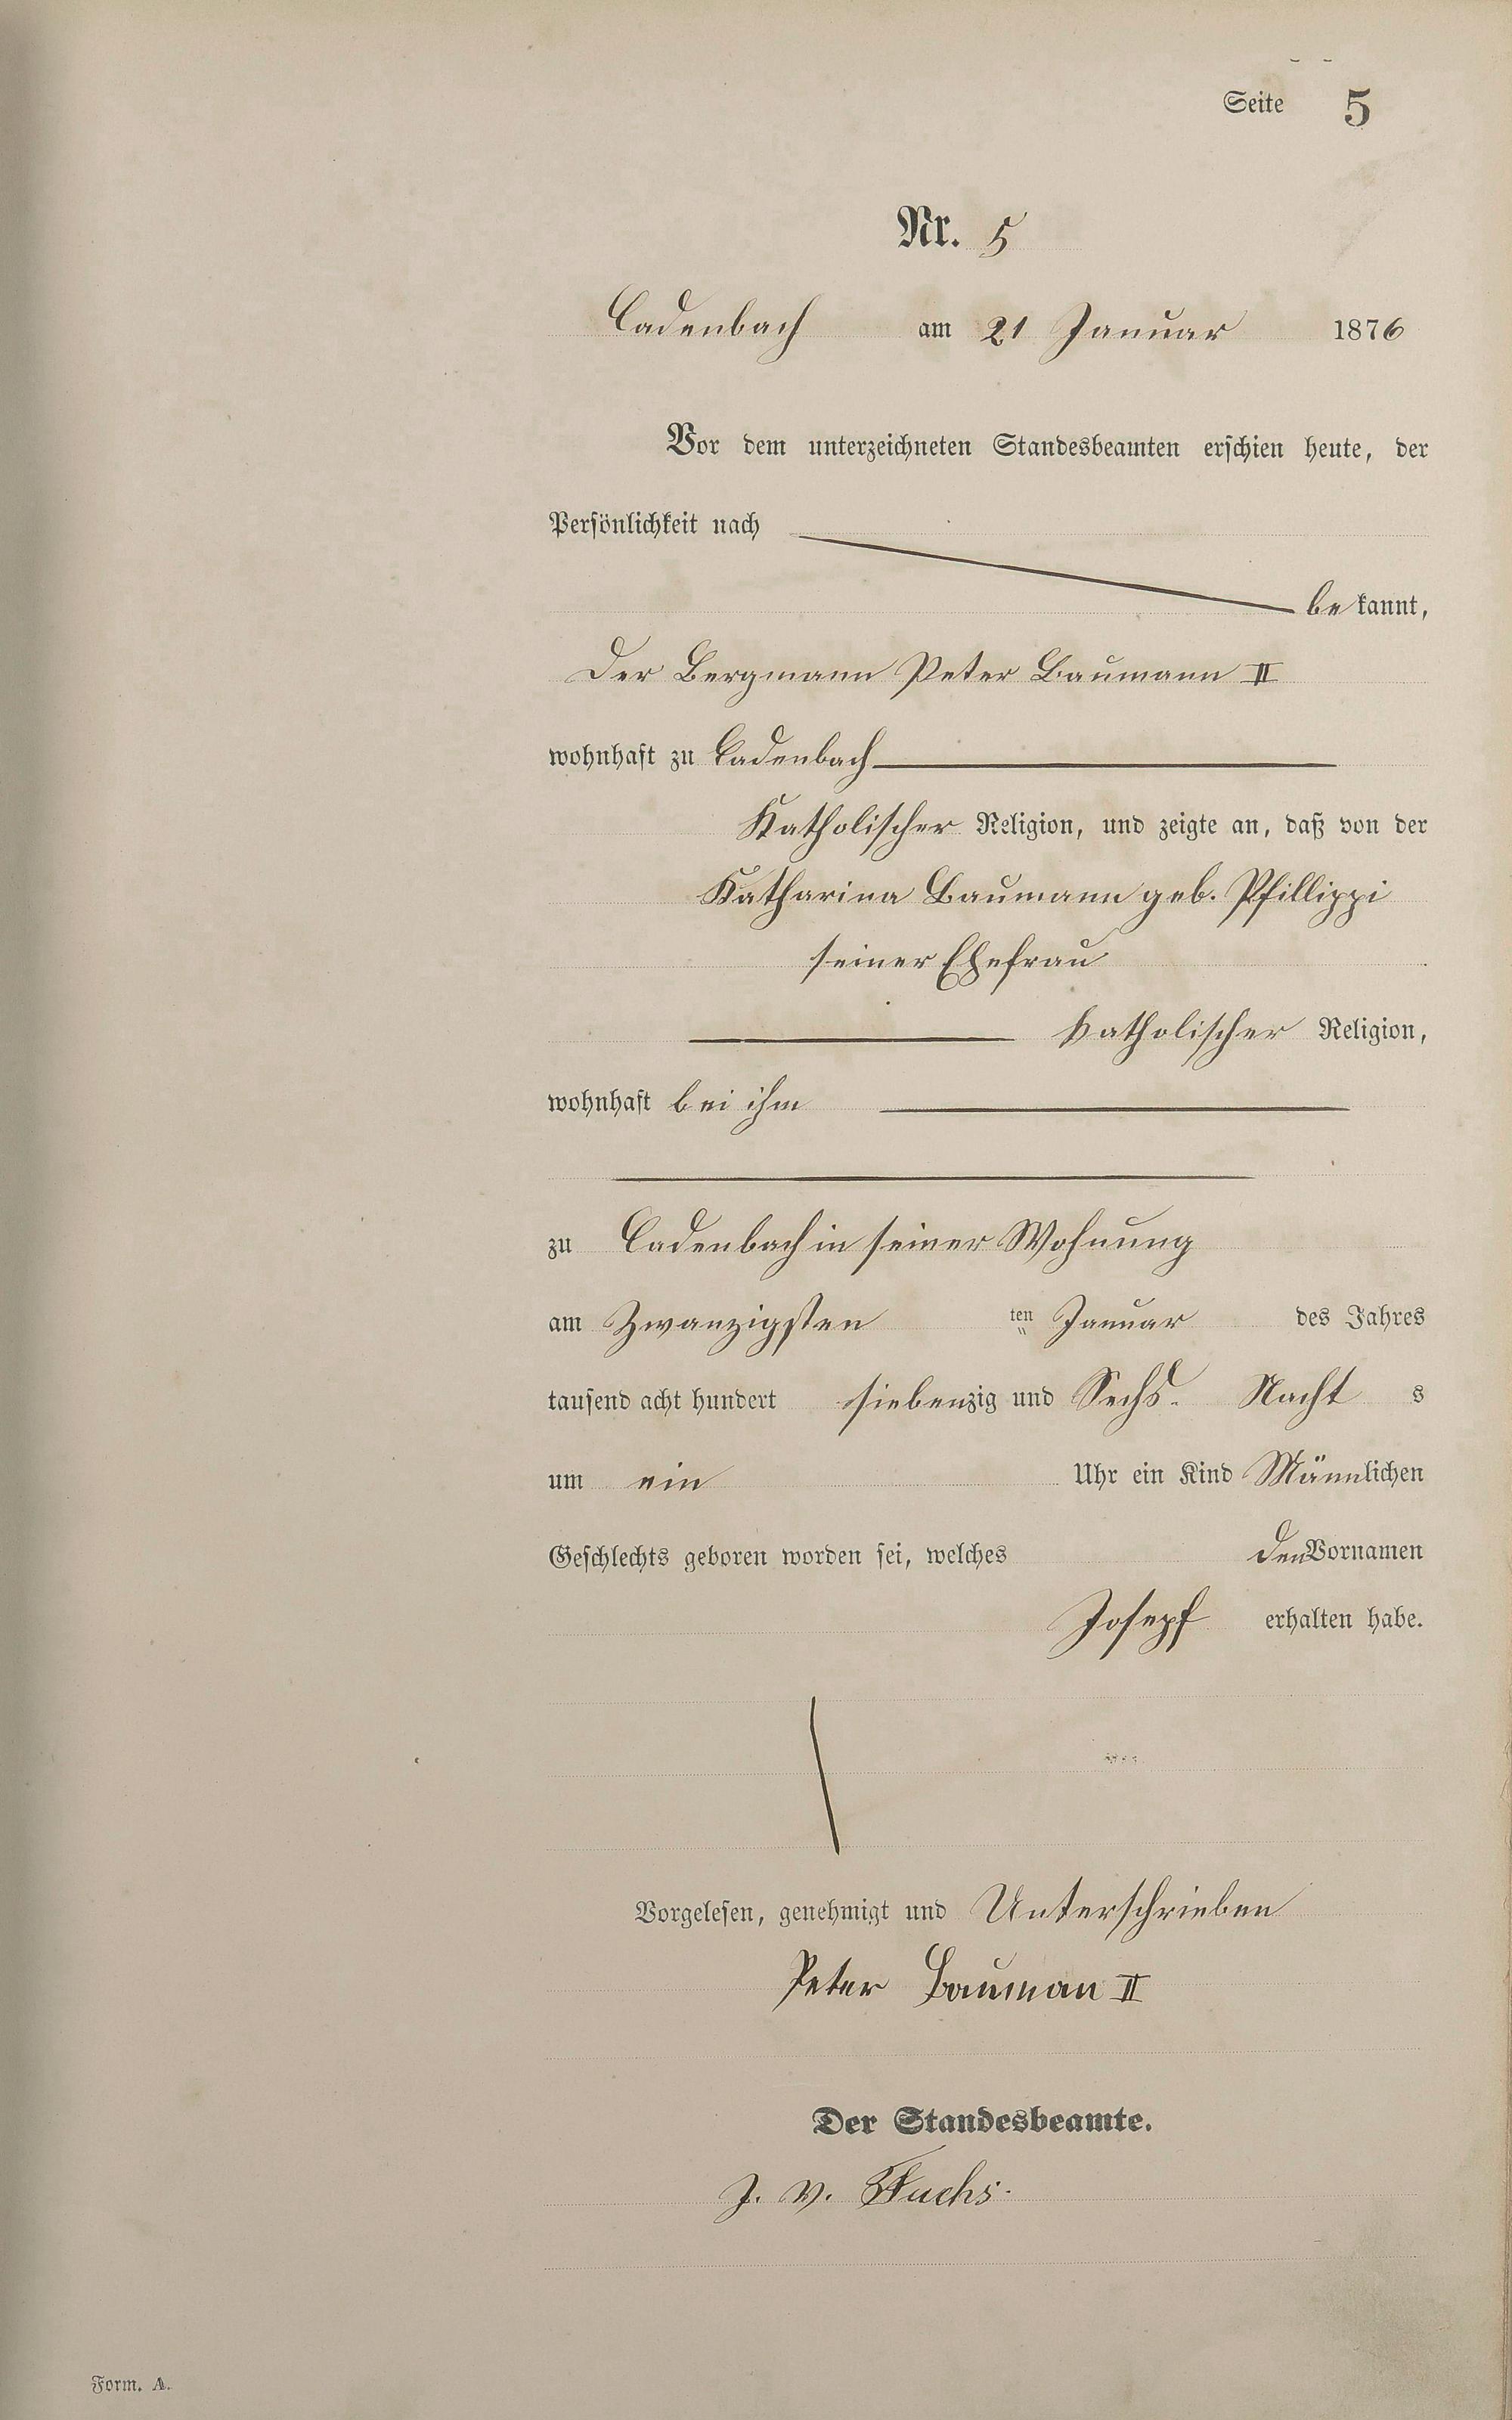 Seite 5
Nr. 5
Cadenbach am 21 Januar 1876
Vor dem unterzeichneten Standesbeamten erschien heute, der
Persönlichkeit nach
be kannt,
Der Bergmann Peter Baumann II
wohnhaft zu Cadenbach
Katholischer Religion, und zeigte an, daß von der
Katharina Baumann geb. Pfillippi
seiner Ehefrau
Katholischer Religion,
wohnhaft bei ihm
zu Cadenbach in seiner Wohnung
am Zwanzigsten ten Januar des Jahres
tausend acht hundert siebenzig und Sechs. Nacht s
um ein Uhr ein Kind Männlichen
Geschlechts geboren worden sei, welches den Vornamen
Josepf erhalten habe.
Vorgelesen, genehmigt und Unterschrieben
Peter Bauman II
Der Standesbeamte.
J. V. Fuchs.
Form. A.